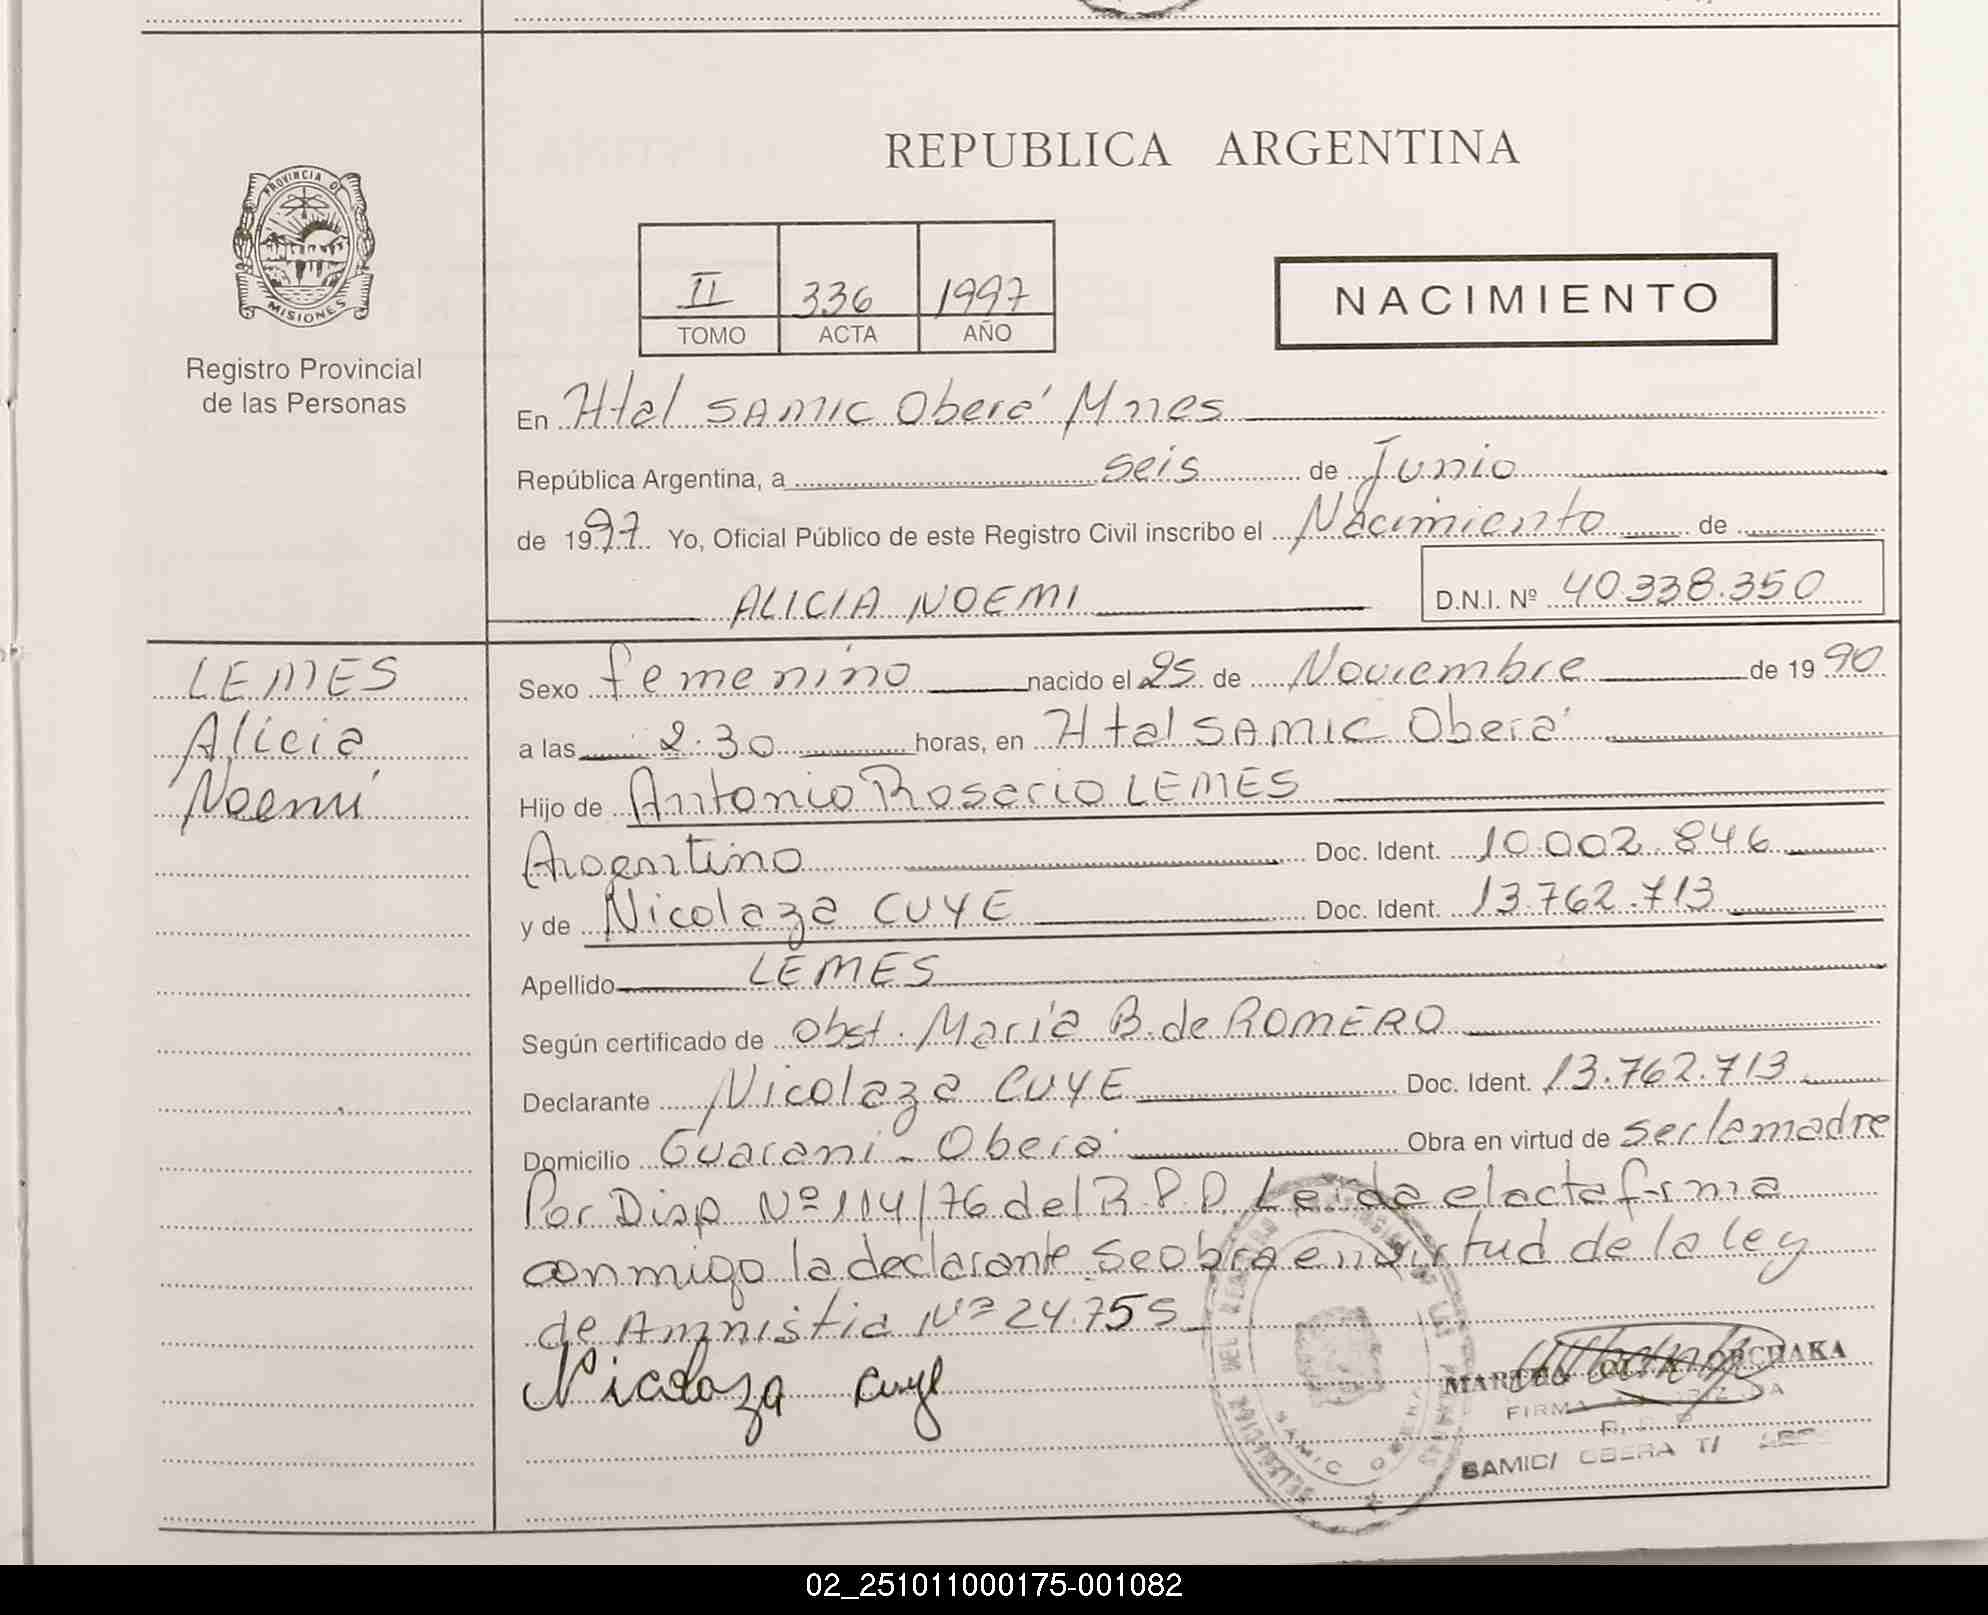 REPUBLICA ARGENTINA
PROVINCIA DE
MISIONES
Registro Provincial
de las Personas
II 336 1997
TOMO ACTA AÑO
NACIMIENTO
En Htal SAMIC Oberá Mnes
República Argentina, a seis de Junio
de 1997 Yo, Oficial Público de este Registro Civil inscribo el Nacimiento de
ALICIA NOEMI D.N.I. Nº 40.338.350
LEMES
Alicia
Noemí
Sexo femenino nacido el 25 de Noviembre de 1990
a las 2:30 horas, en Htal SAMIC Oberá
Hijo de Antonio Rosario LEMES
Argentino Doc. Ident. 10.002.846
y de Nicolaza CUYE Doc. Ident. 13.762.713
Apellido LEMES
Según certificado de Obst. María B. de ROMERO
Declarante Nicolaza CUYE Doc. Ident. 13.762.713
Domicilio Guarani - Oberá Obra en virtud de ser la madre
Por Disp Nº 114/76 del R.P.P. Leída el acta firma
conmigo la declarante. Se obra en virtud de la ley
de Amnistia Nº 24.755
Nicolaza Cuye
SAMIC OBERA
SAMIC/ OBERA
02_251011000175-001082